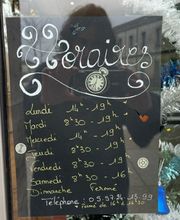 Horaires
Lundi 14h - 19h
Mardi 8h30 - 19h
Mercredi 14h - 19h
Jeudi 8h30 - 19h
Vendredi 8h30 - 19
Samedi 8h30 - 16
Dimanche Fermé
Téléphone : 05.57.